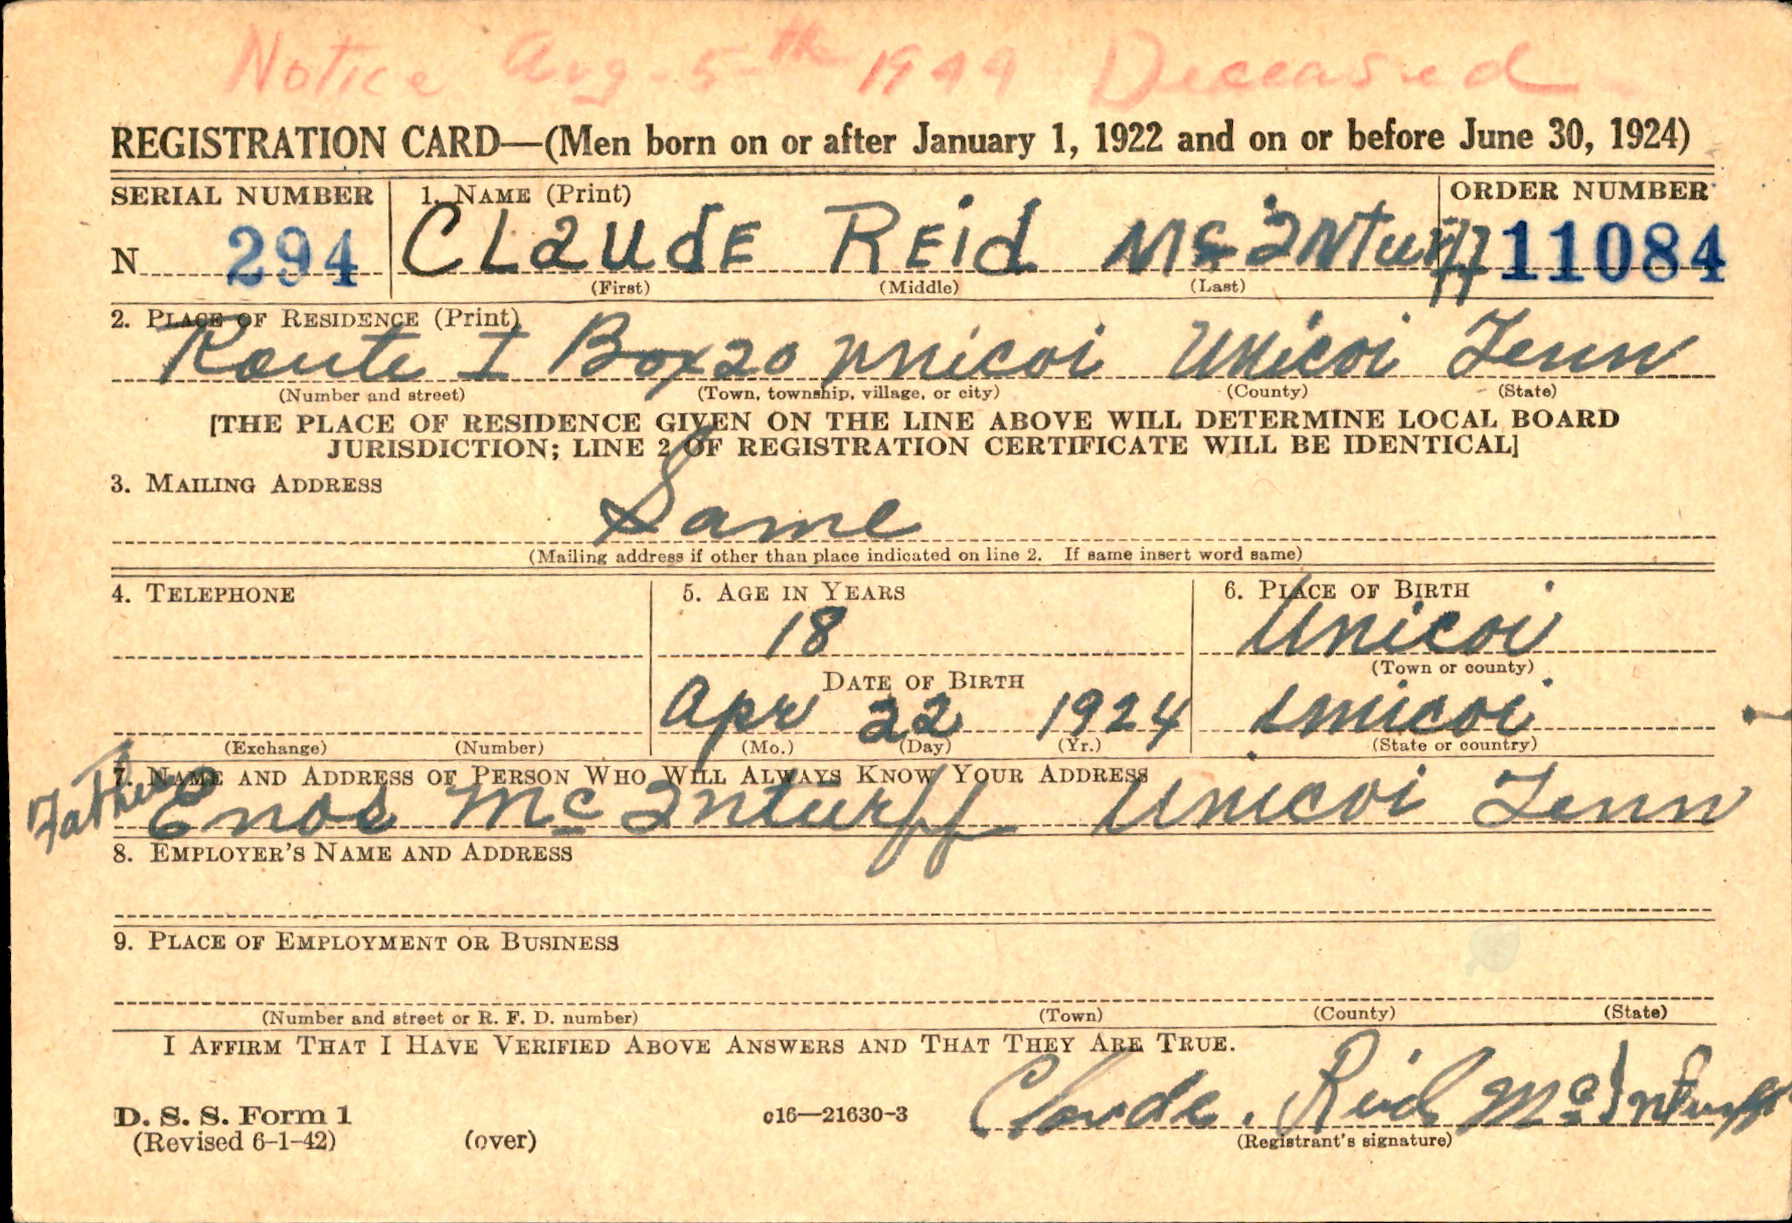 Notice Aug. 5th 1949 Deceased
REGISTRATION CARD—(Men born on or after January 1, 1922 and on or before June 30, 1924)
SERIAL NUMBER 1. NAME (Print) ORDER NUMBER
N 294 CLaUdE REid McInturff 11084
(First) (Middle) (Last)
2. PLACE OF RESIDENCE (Print)
Route 1 Box 20 Unicoi Unicoi Tenn
(Number and street) (Town, township, village, or city) (County) (State)
[THE PLACE OF RESIDENCE GIVEN ON THE LINE ABOVE WILL DETERMINE LOCAL BOARD
JURISDICTION; LINE 2 OF REGISTRATION CERTIFICATE WILL BE IDENTICAL]
3. MAILING ADDRESS
Same
(Mailing address if other than place indicated on line 2. If same insert word same)
4. TELEPHONE 5. AGE IN YEARS 6. PLACE OF BIRTH
18 Unicoi
(Town or county)
DATE OF BIRTH
Apr 22 1924 Unicoi
(Exchange) (Number) (Mo.) (Day) (Yr.) (State or country)
7. NAME AND ADDRESS OF PERSON WHO WILL ALWAYS KNOW YOUR ADDRESS
Father Enos McInturff Unicoi Tenn
8. EMPLOYER'S NAME AND ADDRESS
9. PLACE OF EMPLOYMENT OR BUSINESS
(Number and street or R. F. D. number) (Town) (County) (State)
I AFFIRM THAT I HAVE VERIFIED ABOVE ANSWERS AND THAT THEY ARE TRUE.
Claude. Reid McInturff
D. S. S. Form 1 c16—21630-3
(Revised 6-1-42) (over) (Registrant's signature)